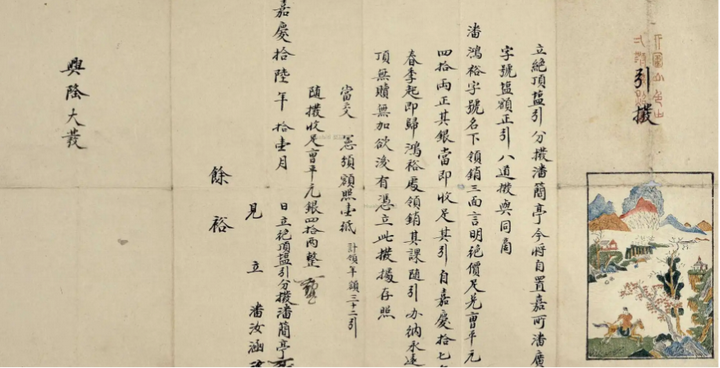 引撥
立絕頂鹽引分撥潘蘭亭今將自置嘉所潘廣
字號鹽額正引八道撥與同局
潘鴻裕字號名下領銷三面言明絕價足兌曹平元
四拾兩正其銀當即收足其引自嘉慶拾七年
春季起即歸鴻裕處領銷其課隨引办納永遠
頂無贖無加欲後有憑立此撥據存照
當交 憑領額照壹紙 計領年額三十二引
隨撥收足曹平元銀四拾兩整
嘉慶拾陸年拾壹月 日立絕頂鹽引分撥潘蘭亭
見立 潘汝涵
餘裕
興隆大發